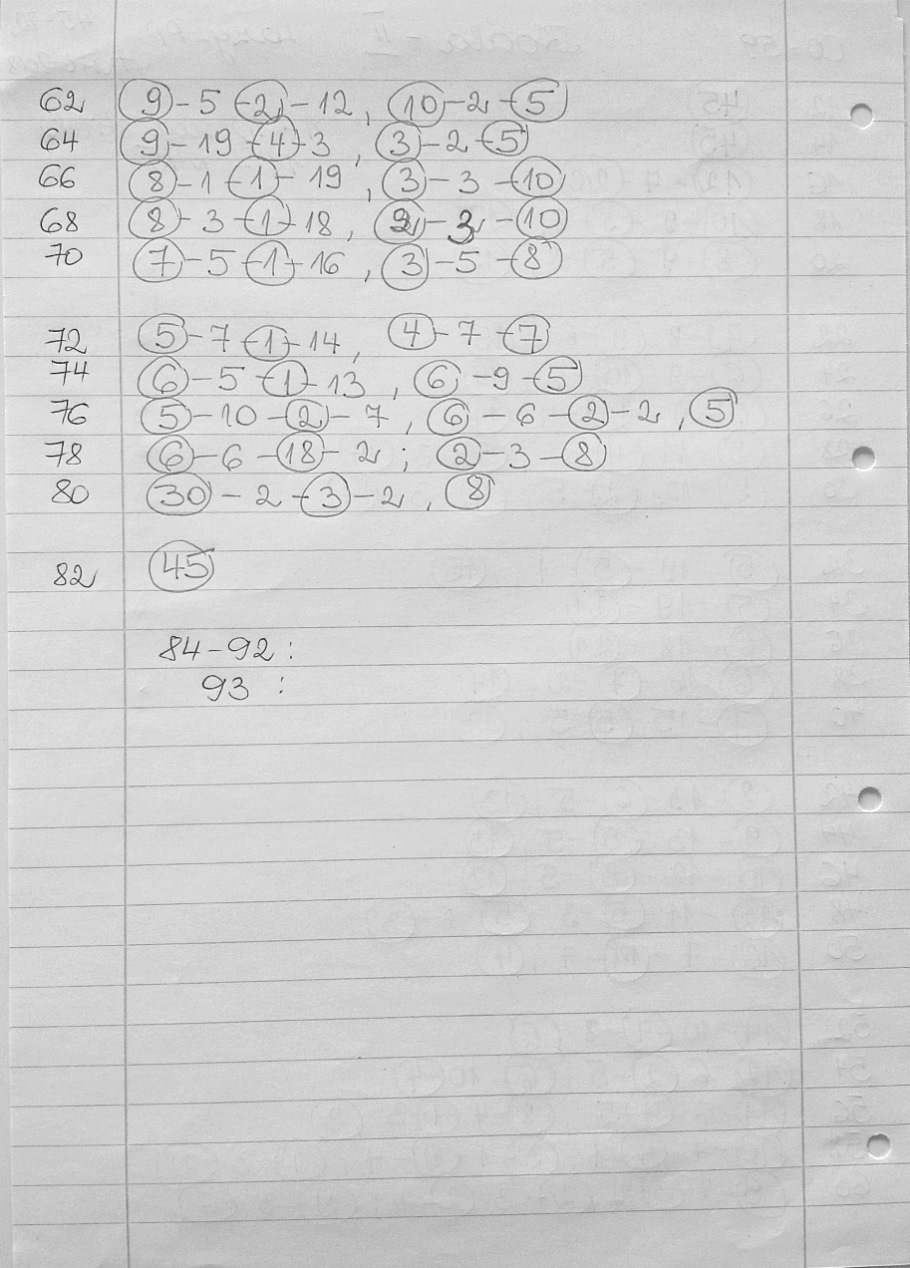 62 9-5-2-12, 10-2-5
64 9-19-4-3, 3-2-5
66 8-1-1-19, 3-3-10
68 8-3-1-18, 2-3-10
70 7-5-1-16, 3-5-8
72 5-7-1-14, 4-7-7
74 6-5-1-13, 6-9-5
76 5-10-2-7, 6-6-2-2, 5
78 6-6-18-2; 2-3-8
80 30-2-3-2, 8
82 45
84-92:
93 :